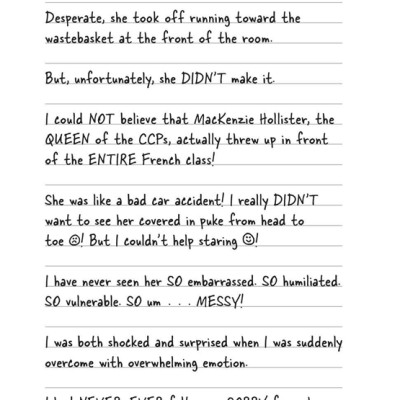 Desperate, she took off running toward the
wastebasket at the front of the room.
But, unfortunately, she DIDN'T make it.
I could NOT believe that MacKenzie Hollister, the
QUEEN of the CCPs, actually threw up in front
of the ENTIRE French class!
She was like a bad car accident! I really DIDN'T
want to see her covered in puke from head to
toe ☹! But I couldn't help staring ☺!
I have never seen her SO embarrassed. SO humiliated.
SO vulnerable. SO um . . . MESSY!
I was both shocked and surprised when I was suddenly
overcome with overwhelming emotion.